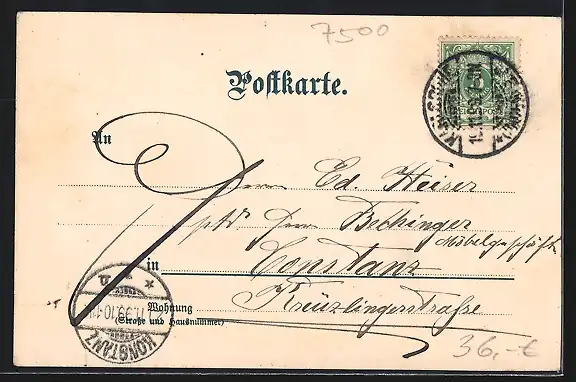 7500
Postkarte.
An
Herrn Ed. Heiser
ptr Herrn Bechinger
Möbelgeschäft
in Constanz
Kreuzlingerstraße
Wohnung
(Straße und Hausnummer)
KONSTANZ
36,-€